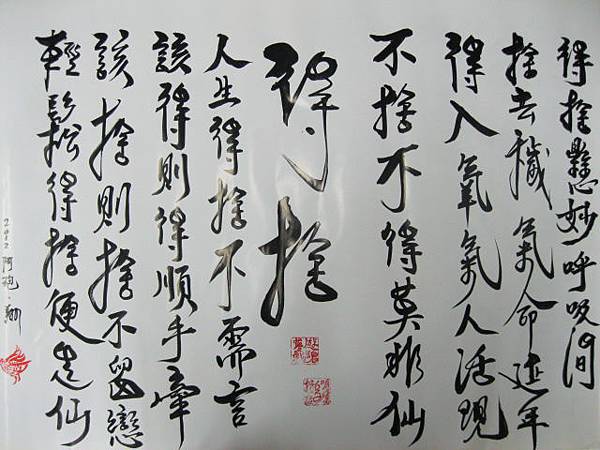 得捨懸妙呼吸間
捨去穢氣命延年
得入氧氣人活現
不捨不得莫非仙
得捨
人生得捨不需言
該得則得順手牽
該捨則捨不留戀
輕鬆得捨便是仙